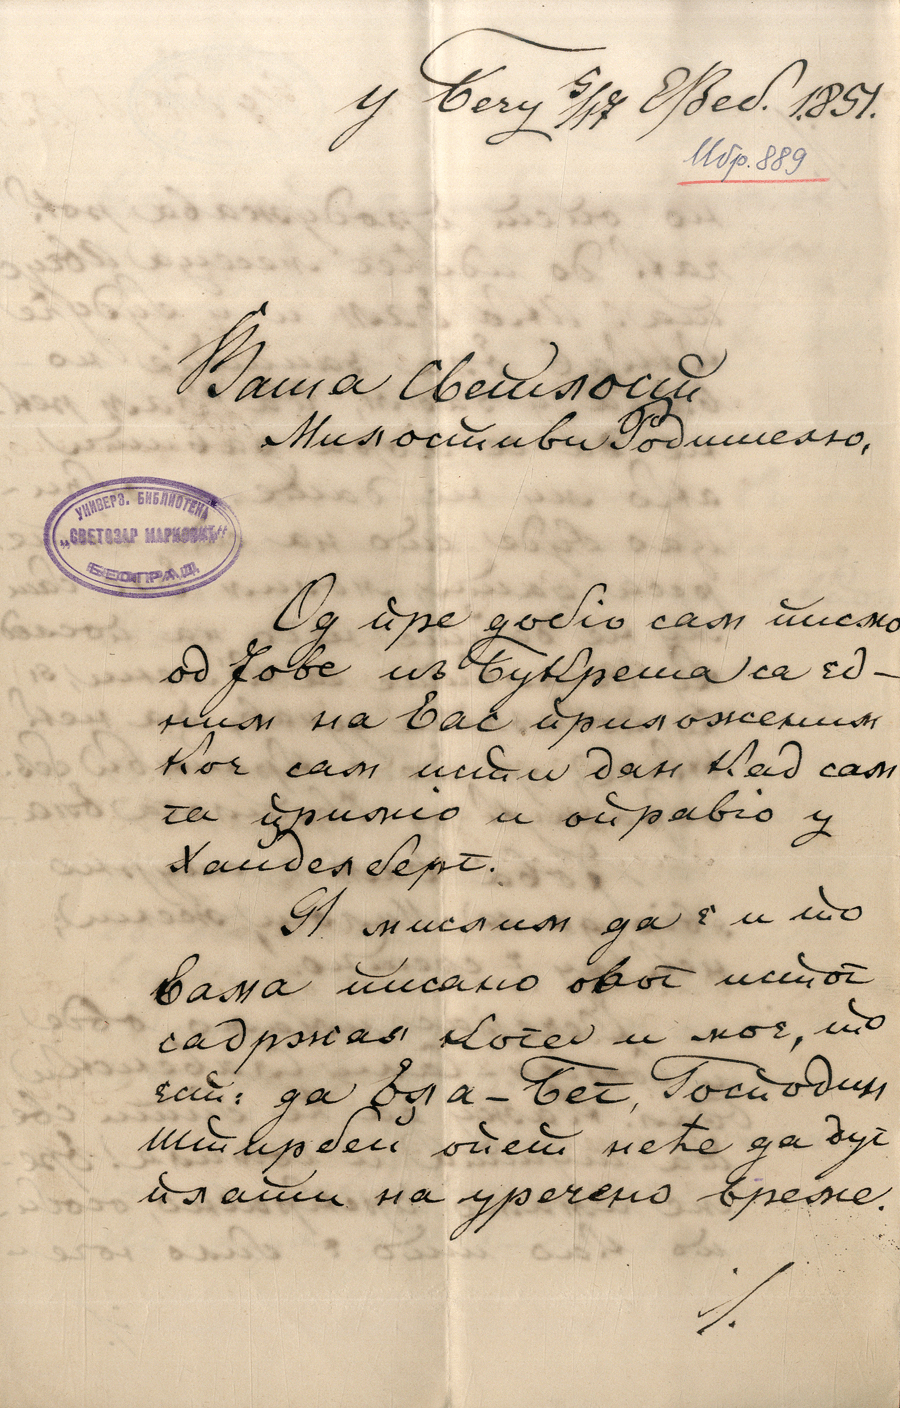 у Бечу 5/17 Феб. 1851.
Ибр. 889
Ваша Светлост
Милостиви Родителю,
УНИВЕРЗ. БИБЛИОТЕКА
„СВЕТОЗАР МАРКОВИЋ“
БЕОГРАД
Од пре добіо сам писмо
од Јове изъ Букрешта са ед-
ним на Вас приложеним
кое сам исти дан кад сам
га примio и оправіо у
Хайделберг.
Я мислим да є и то
Вама писано овог истог
садржая кога и мое, то
ест: да Ега-Бег, Господин
Штирбей опет неће да дуг
плати на уречено време.
/.